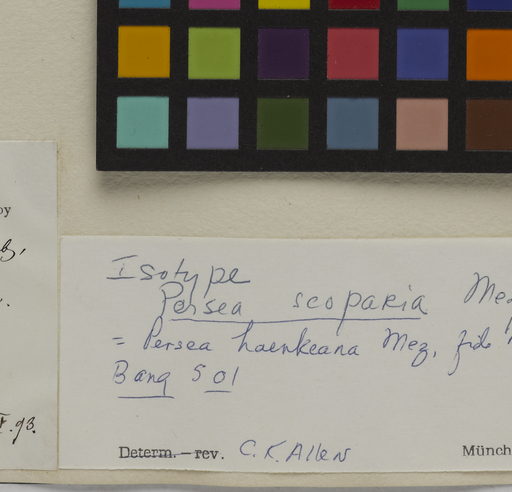 Isotype
Persea scoparia Mez
= Persea haenkeana Mez, fide
Bang 501
Determ.—rev. C.K. Allen Münch